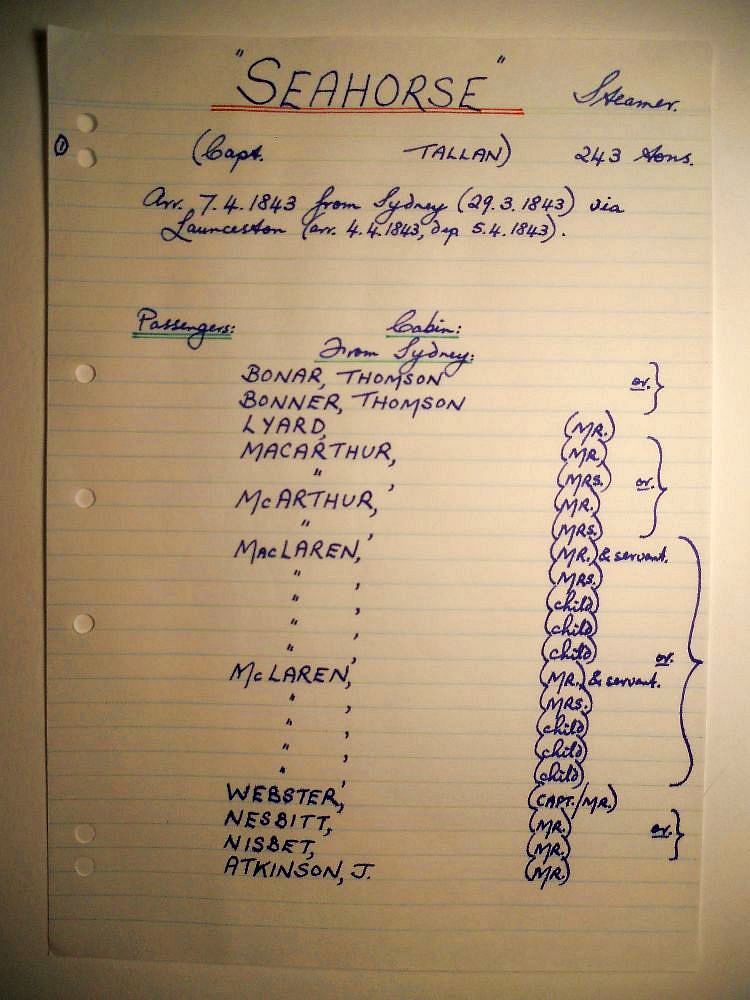 "SEAHORSE" Steamer.
① (Capt. TALLAN) 243 tons.
Arr. 7.4.1843 from Sydney (29.3.1843) via
Launceston (arr. 4.4.1843, dep 5.4.1843).
Passengers: Cabin:
From Sydney:
BONAR, THOMSON or. }
BONNER, THOMSON
LYARD, (MR.)
MACARTHUR, (MR.)
" , (MRS.) or. }
McARTHUR, (MR.)
" , (MRS.)
MacLAREN, (MR.) & servant.
" , (MRS.)
" , (child)
" , (child)
" , (child)
McLAREN, (MR.) & servant. or. }
" , (MRS.)
" , (child)
" , (child)
" , (child)
WEBSTER, (CAPT./MR.)
NESBITT, (MR.) or. }
NISBET, (MR.)
ATKINSON, J. (MR.)